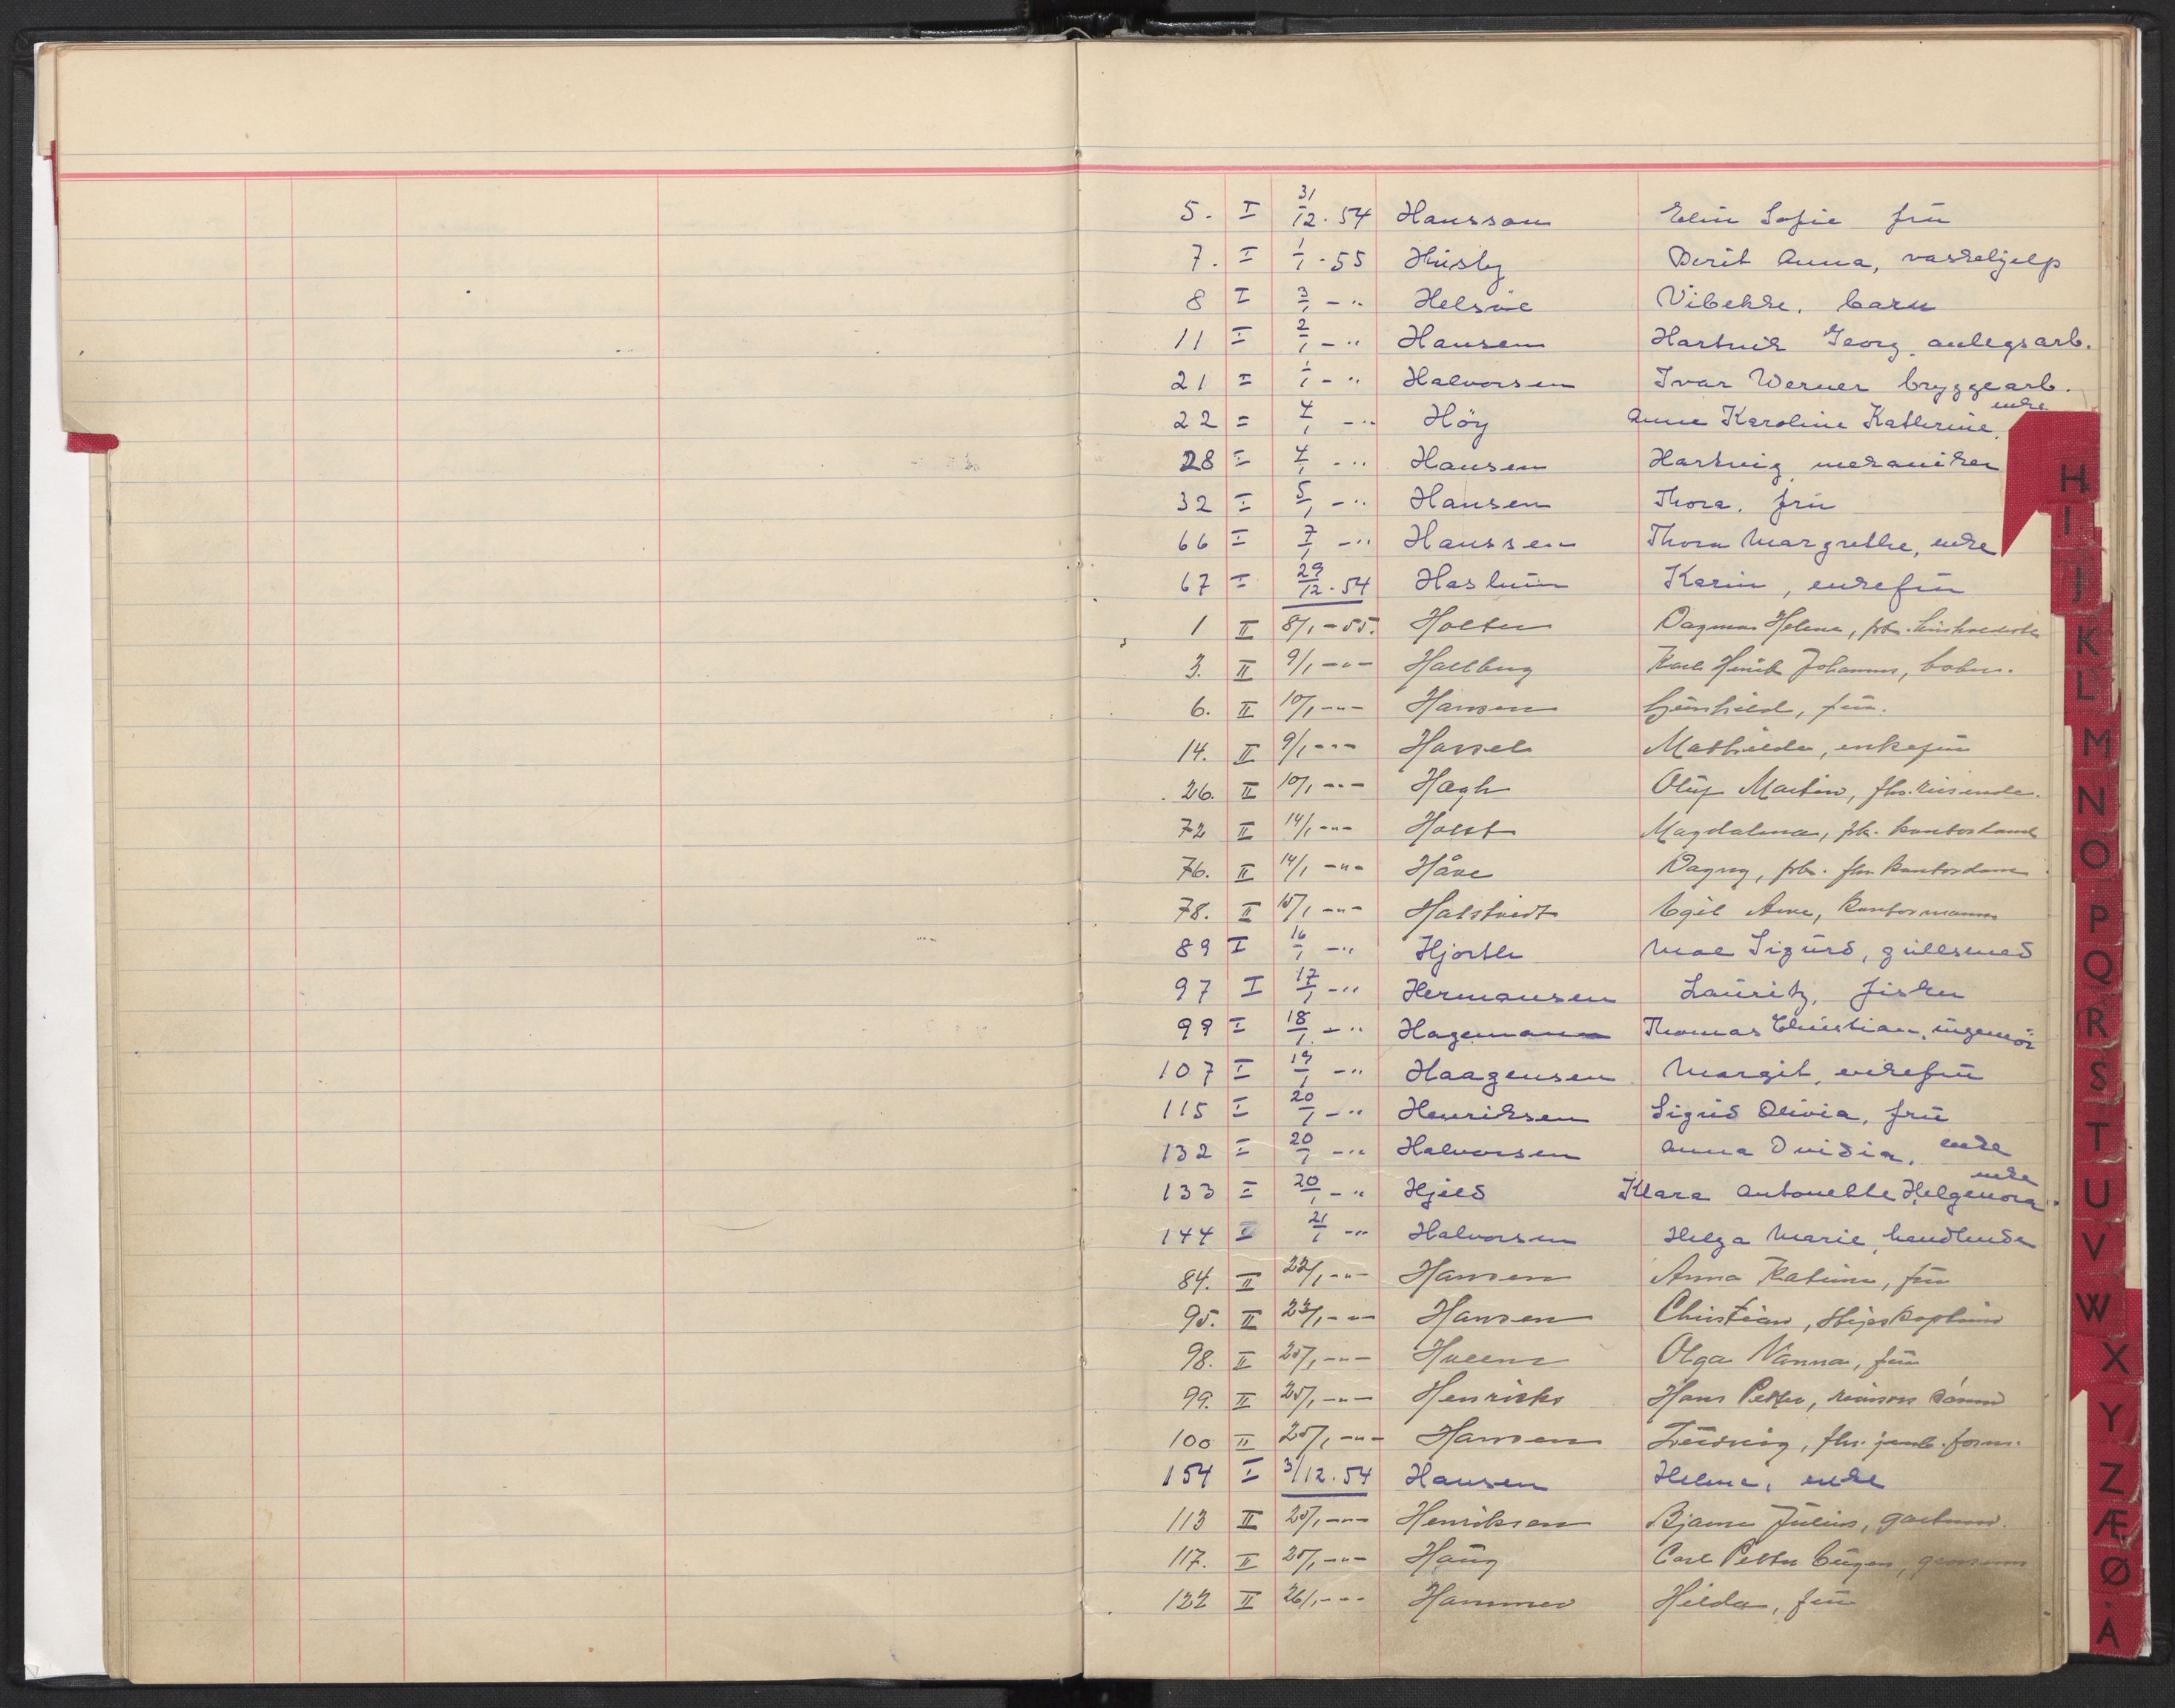 5. I 31/12.54 Hansson Elin Sofie frü
7. I 1/1.55 Hüsby Berit Anna, vaskehjelp
8 I 3/1 - " Helsvie Vibekke, barn
11 I 2/1 - " Hansen Hartvik Georg, anlegsarb.
21 I 1/1 - " Halvorsen Ivar Werner bryggearb.
22 I 4/1 - " Höy Anne Karoline Kathrine, enke
28 I 4/1 - " Hansen Hartvig mekaniker
32 I 5/1 - " Hansen Thora, frü
66 I 7/1 - " Hanssen Thora Margrethe, enke
67 I 29/12.54 Haslüm Karin, enkefrü
1 II 8/1 - 55. Holter Dagmar Helene, frk.
3. II 9/1 - " - Hallberg Karl Henrik Johannes,
6. II 10/1 - " - Hansen Günhild, frü.
14. II 9/1 - " - Hassel Mathilde, enkefrü
26. II 10/1 - " - Hægh Olüf Martin, fhv. reisende.
72 II 14/1 - " - Holst Magdalena, frk. kontordame
76. II 14/1 - " - Håve Dagny, frk. fhv. kontordame
78. II 15/1 - " - Halstvedt Egil Arne, kontormann
89 I 16/1 - " Hjorth Moe Sigürd, güllsmed
97 I 17/1 - " Hermansen Laüritz, fisker
99 I 18/1 - " Hagemann Thomas Christian, ingeniör
107 I 19/1 - " Haagensen Margit, enkefrü
115 I 20/1 - " Henriksen Sigrid Olivia, frü
132 I 20/1 - " Halvorsen Anna Ovidia, enke
133 I 20/1 - " Hjeld Klara Antonette Helgenora, enke
144 I 21/1 - " Halvorsen Helga Marie, handlende
84. II 22/1 - " - Hansen Anna Katinna, frü
95. II 23/1 - " - Hansen Christian, skipskaptein
98. II 25/1 - " - Olga Nanna, frü
99. II 25/1 - " - Henricks Hans Petter,
100 II 25/1 - " - Hansen Lüdvig, fhv. jernb. form.
154 I 3/12.54 Hansen Helene, enke
113 II 25/1 - " - Henriksen Bjarne Jülius, gartner.
117. II 25/1 - " - Haüg Carl Petter Eügen,
122 II 26/1 - " - Hammer Hilda, frü
H
I
J
K
L
M
N
O
P
Q
R
S
T
U
V
W
X
Y
Z
Æ
Ø
Å